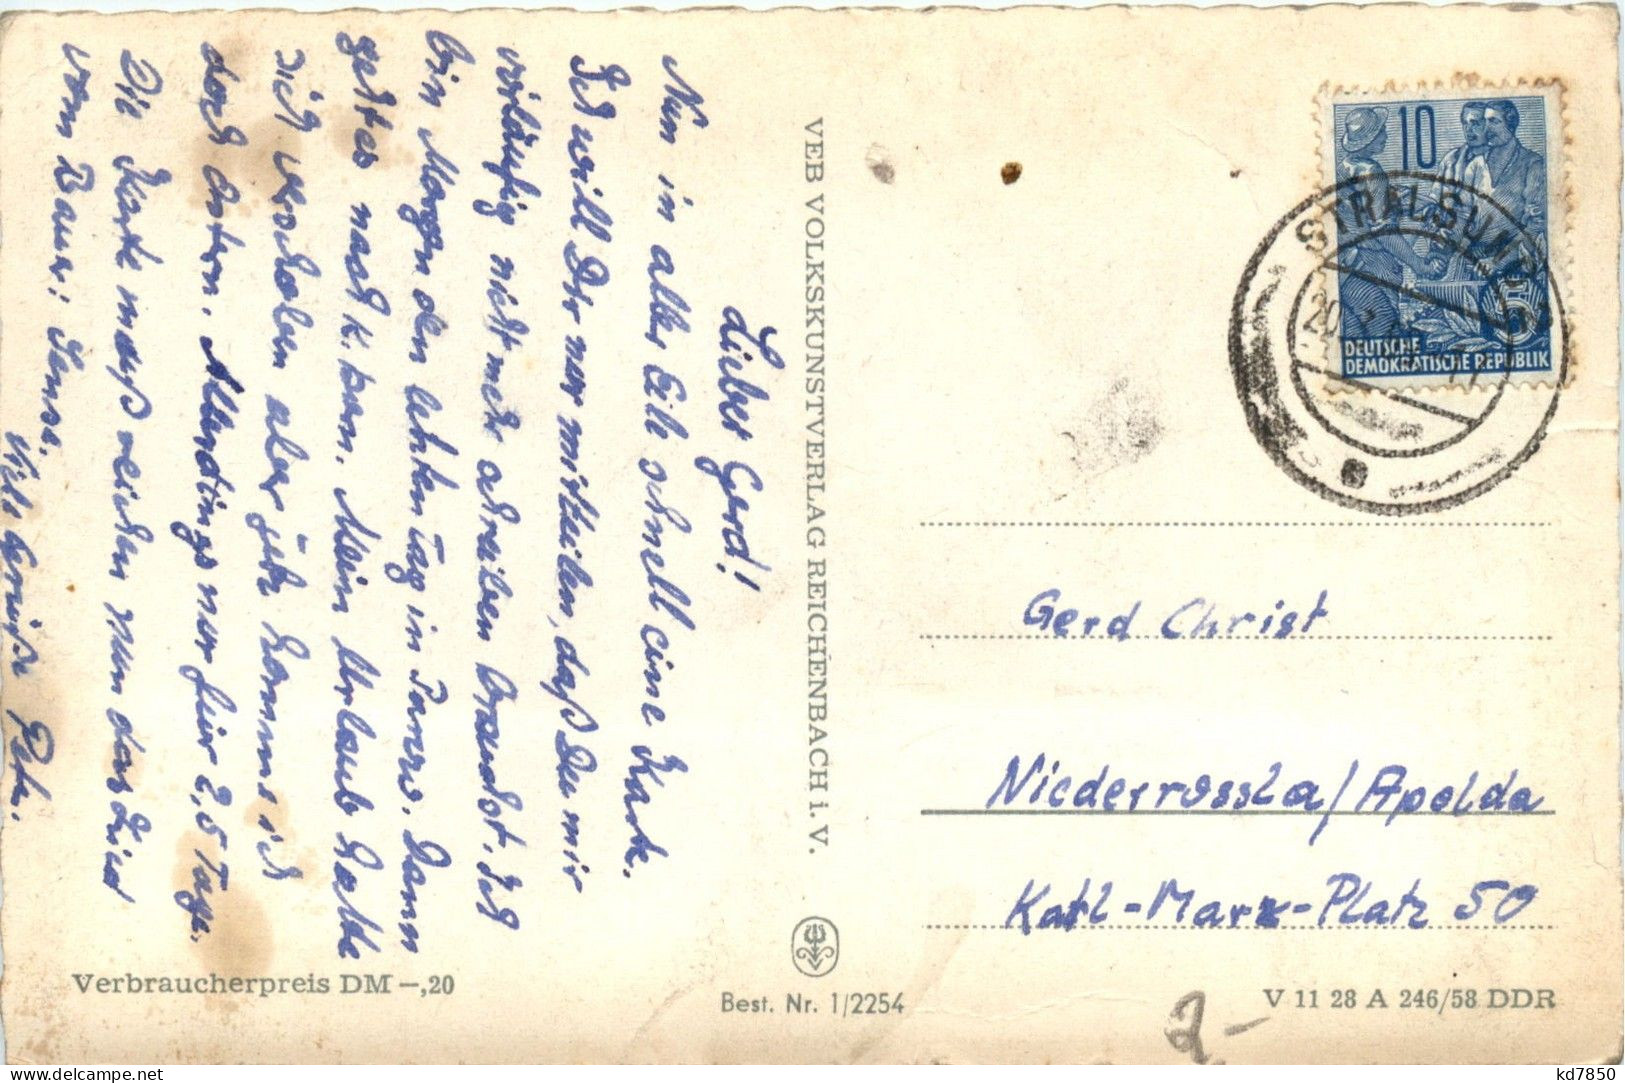 Lieber Gerd!
Nun in aller Eile schnell eine Karte.
Ich will Dir nur mitteilen, daß Du mir
vorläufig nicht mehr schreiben brauchst. Ich
bin Morgen den letzten Tag in Parow. Dann
geht es nach K. born. Mein Urlaub hatte
sich verschoben aber jetzt komme ich
doch Ostern. Allerdings nur für 2,5 Tage.
Die Karte muß reichen nun das Lied
vom Bauer: Sense.
Viele Grüße Peter.
Verbraucherpreis DM –,20
VEB VOLKSKUNSTVERLAG REICHENBACH i. V.
Best. Nr. 1/2254
10
DEUTSCHE
DEMOKRATISCHE REPUBLIK
STRALSUND
20.
Gerd Christ
Niederrossla/Apolda
Karl-Marx-Platz 50
V 11 28 A 246/58 DDR
2-
kd7850